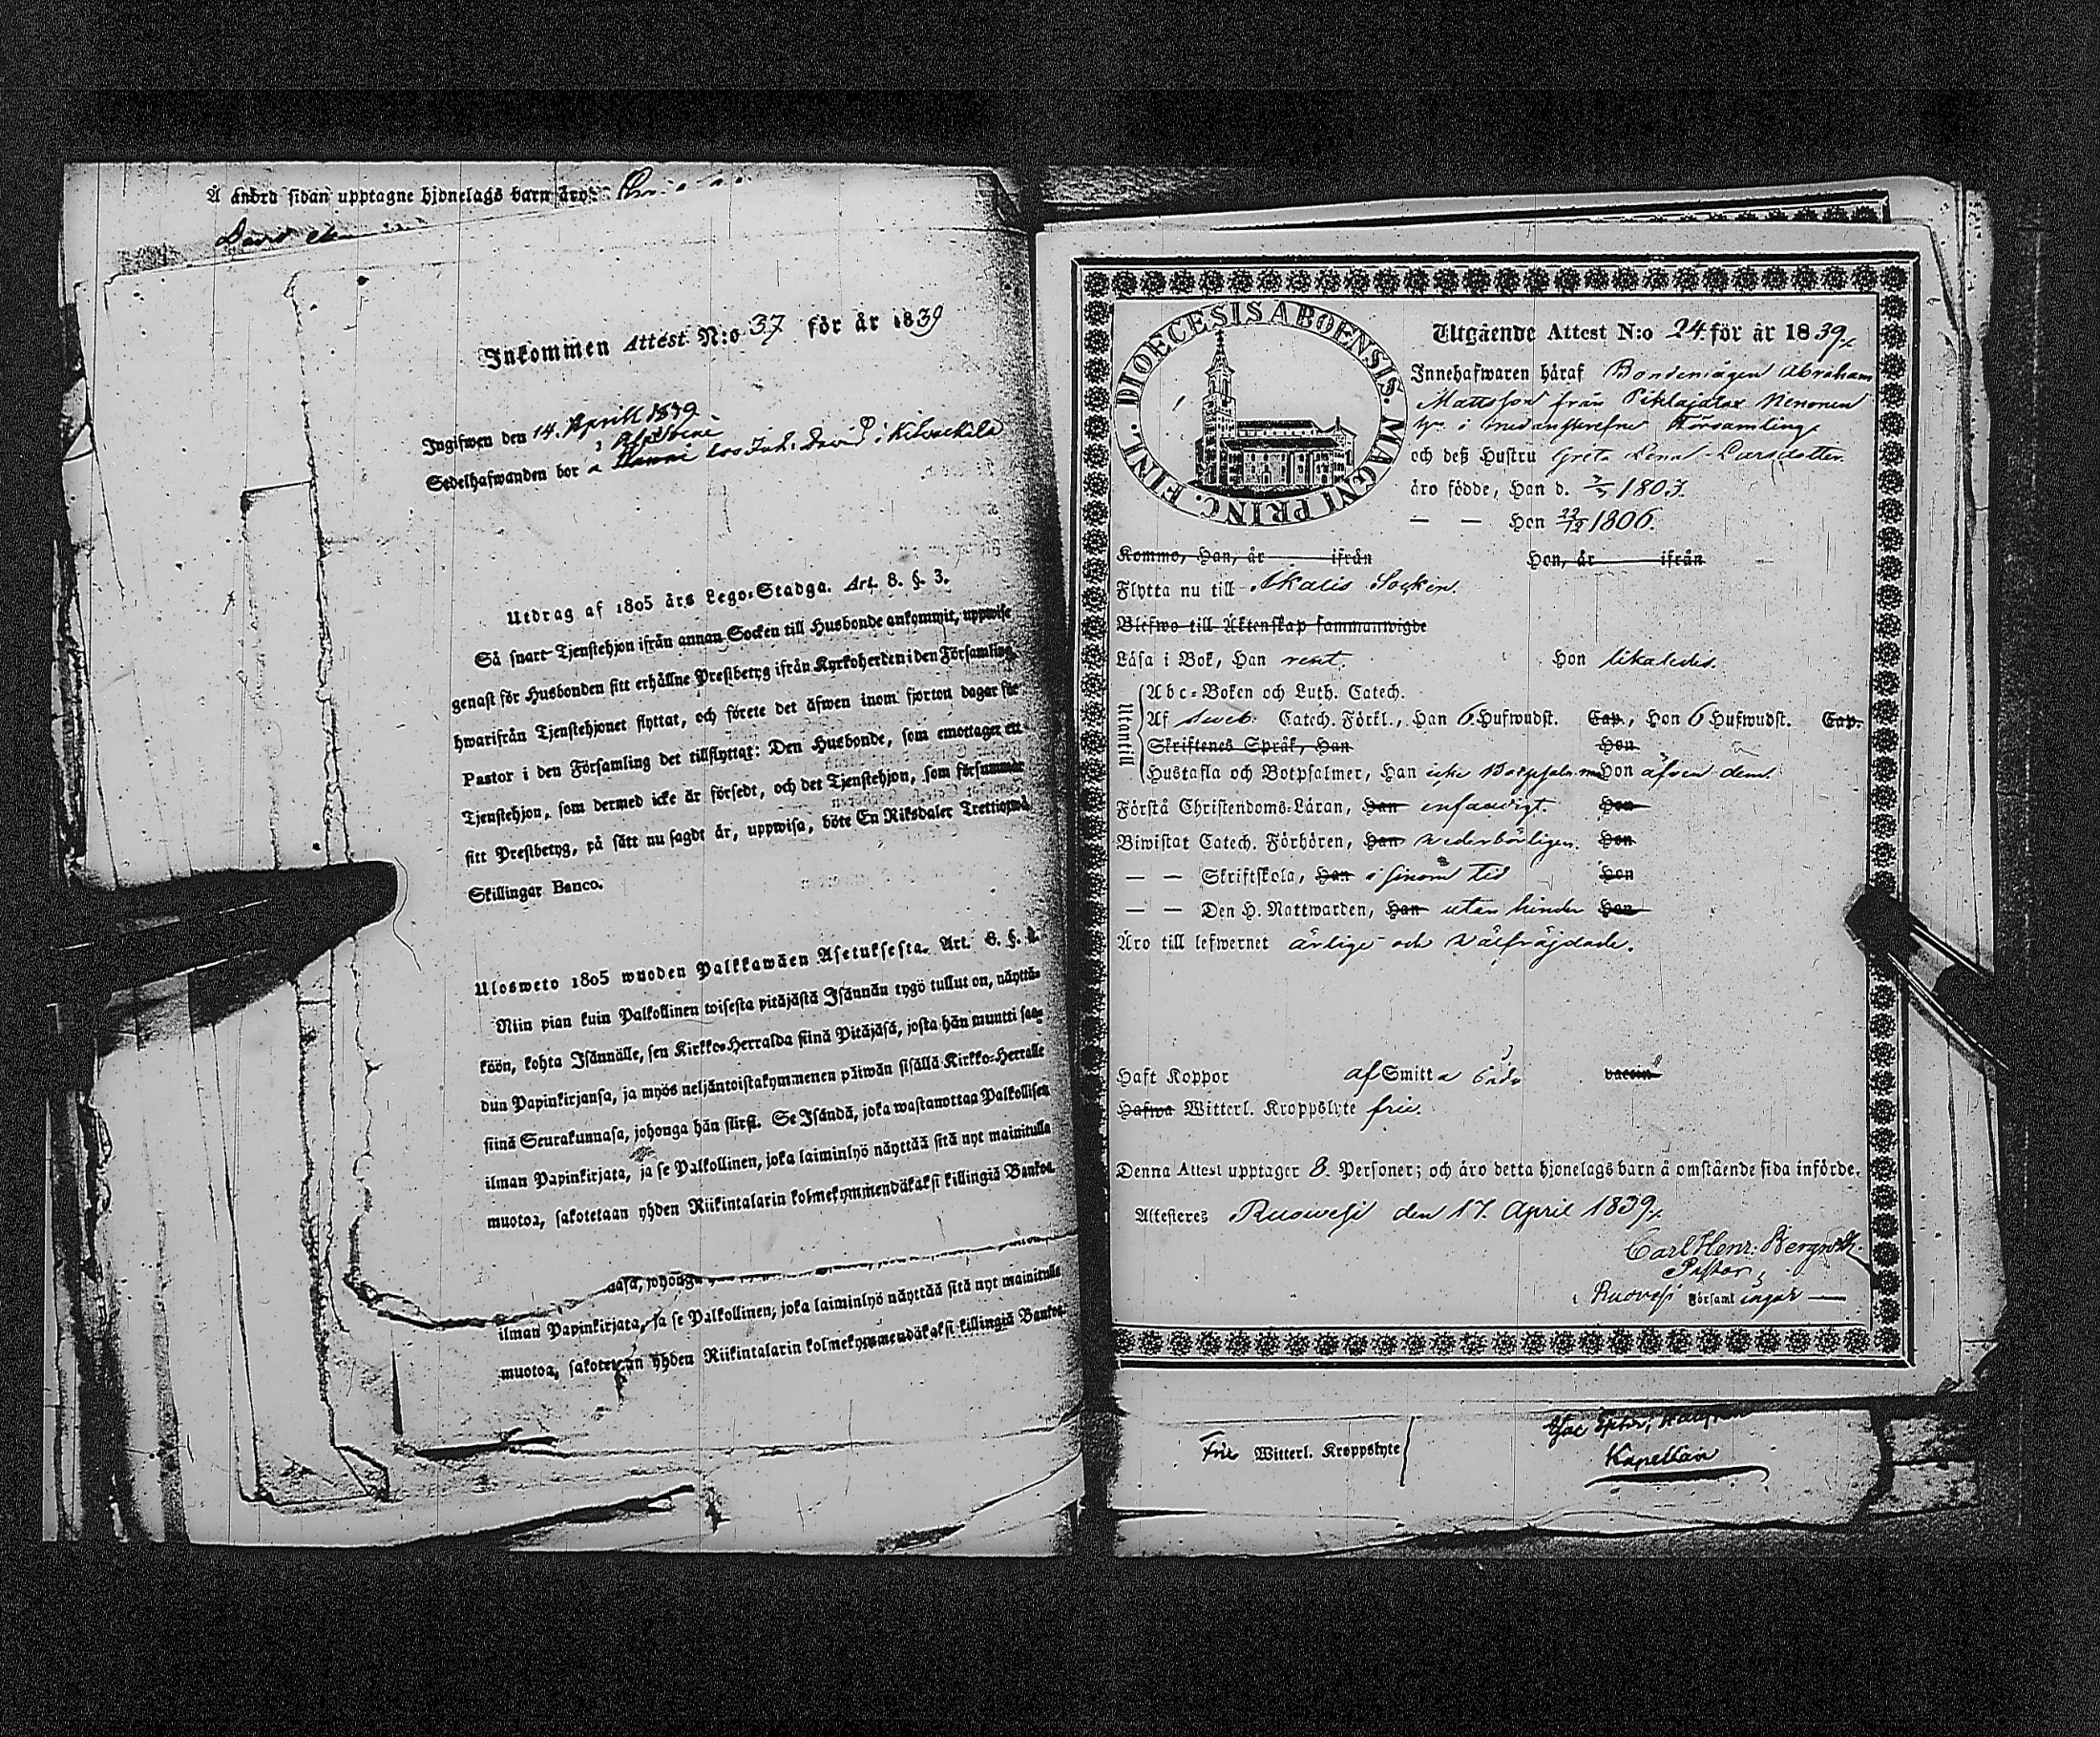 Å andra sidan upptagne hjonelags barn äro:
David
Inkommen Attest N:o 37 för år 1839
Ingifwen den 14. Aprill 1839
Sedelhafwanden bor
Utdrag af 1805 års Lego-Stadga. Art. 8. §. 3.
Så snart Tjenstehjon ifrån annan Socken till Husbonde ankommit, uppwise
genast för Husbonden sitt erhållne Prestbetyg ifrån Kyrkoherden i den Församling,
hwarifrån Tjenstehjonet flyttat, och förete det äfwen inom fjorton dagar för
Pastor i den Församling det tillflyttat: Den Husbonde, som emottager ett
Tjenstehjon, som dermed icke är försedt, och det Tjenstehjon, som försummar
sitt Prestbetyg, på sätt nu sagdt är, uppwisa, böte En Riksdaler Trettiotwå
Skillingar Banco.
Ulosweto 1805 wuoden Palkkawäen Asetuksesta. Art. 8. §.
Niin pian kuin Palkollinen toisesta pitäjästä Isännän tygö tullut on, näyttä-
köön, kohta Isännälle, sen Kirkko-Herralda siinä Pitäjäsä, josta hän muutti saa-
dun Papinkirjansa, ja myös neljäntoistakymmenen päiwän sisällä Kirkko-Herralle
siinä Seurakunnasa, johonga hän siirsi. Se Isändä, joka wastanottaa Palkollisen
ilman Papinkirjata, ja se Palkollinen, joka laiminlyö näyttää sitä nyt mainitulla
muotoa, sakotetaan yhden Riikintalarin kolmekymmendäkaksi killingiä Bankoa.
nasa, johonga
ilman Papinkirjata, ja se Palkollinen, joka laiminlyö näyttää sitä nyt mainitulla
muotoa, sakotetaan yhden Riikintalarin kolmekymmendäkaksi killingiä Bankoa.
DIOECESIS ABOENSIS. MAGNI PRINC. FINL.
Utgående Attest N:o 24 för år 1839
Innehafwaren häraf Bondemågen Abraham
Mattsson från Pihlajalax Nenonen
i nedanskrefne Församling
och deß Hustru Greta Lena Larsdotter
äro födde, Han d. 3/5 1803.
— — Hon 22/12 1806.
Kommo, Han, år ifrån Hon, år ifrån
Flytta nu till Ikalis Socken.
Blefwo till Äktenskap sammanwigde
Läsa i Bok, Han rent. Hon likaledes.
Utantill
Abc-Boken och Luth. Catech.
Af Sweb. Catech. Förkl., Han 6 Hufwudst. Cap., Hon 6 Hufwudst. Cap.
Skriftenes Språk, Han Hon
Hustafla och Botpsalmer, Han icke Botpsalm. Hon äfven dem.
Förstå Christendoms-Läran, Han enfaldigt. Hon
Biwistat Catech. Förhören, Han vederbörligen. Hon
— — Skriftskola, Han i sinom tid Hon
— — Den H. Nattwarden, Han utan hinder Hon
Äro till lefwernet ärlige och välfrägdade.
Haft Koppor af Smitta båda vaccin
Hafwa Witterl. Kroppslyte frie.
Denna Attest upptager 8. Personer; och äro detta hjonelags barn å omstående sida införde.
Attesteres Ruowesi den 17. April 1839.
Carl Henr: Bergroth.
Pastor
i Ruovesi Församlingar
Frie Witterl. Kroppslyte
Kapellan